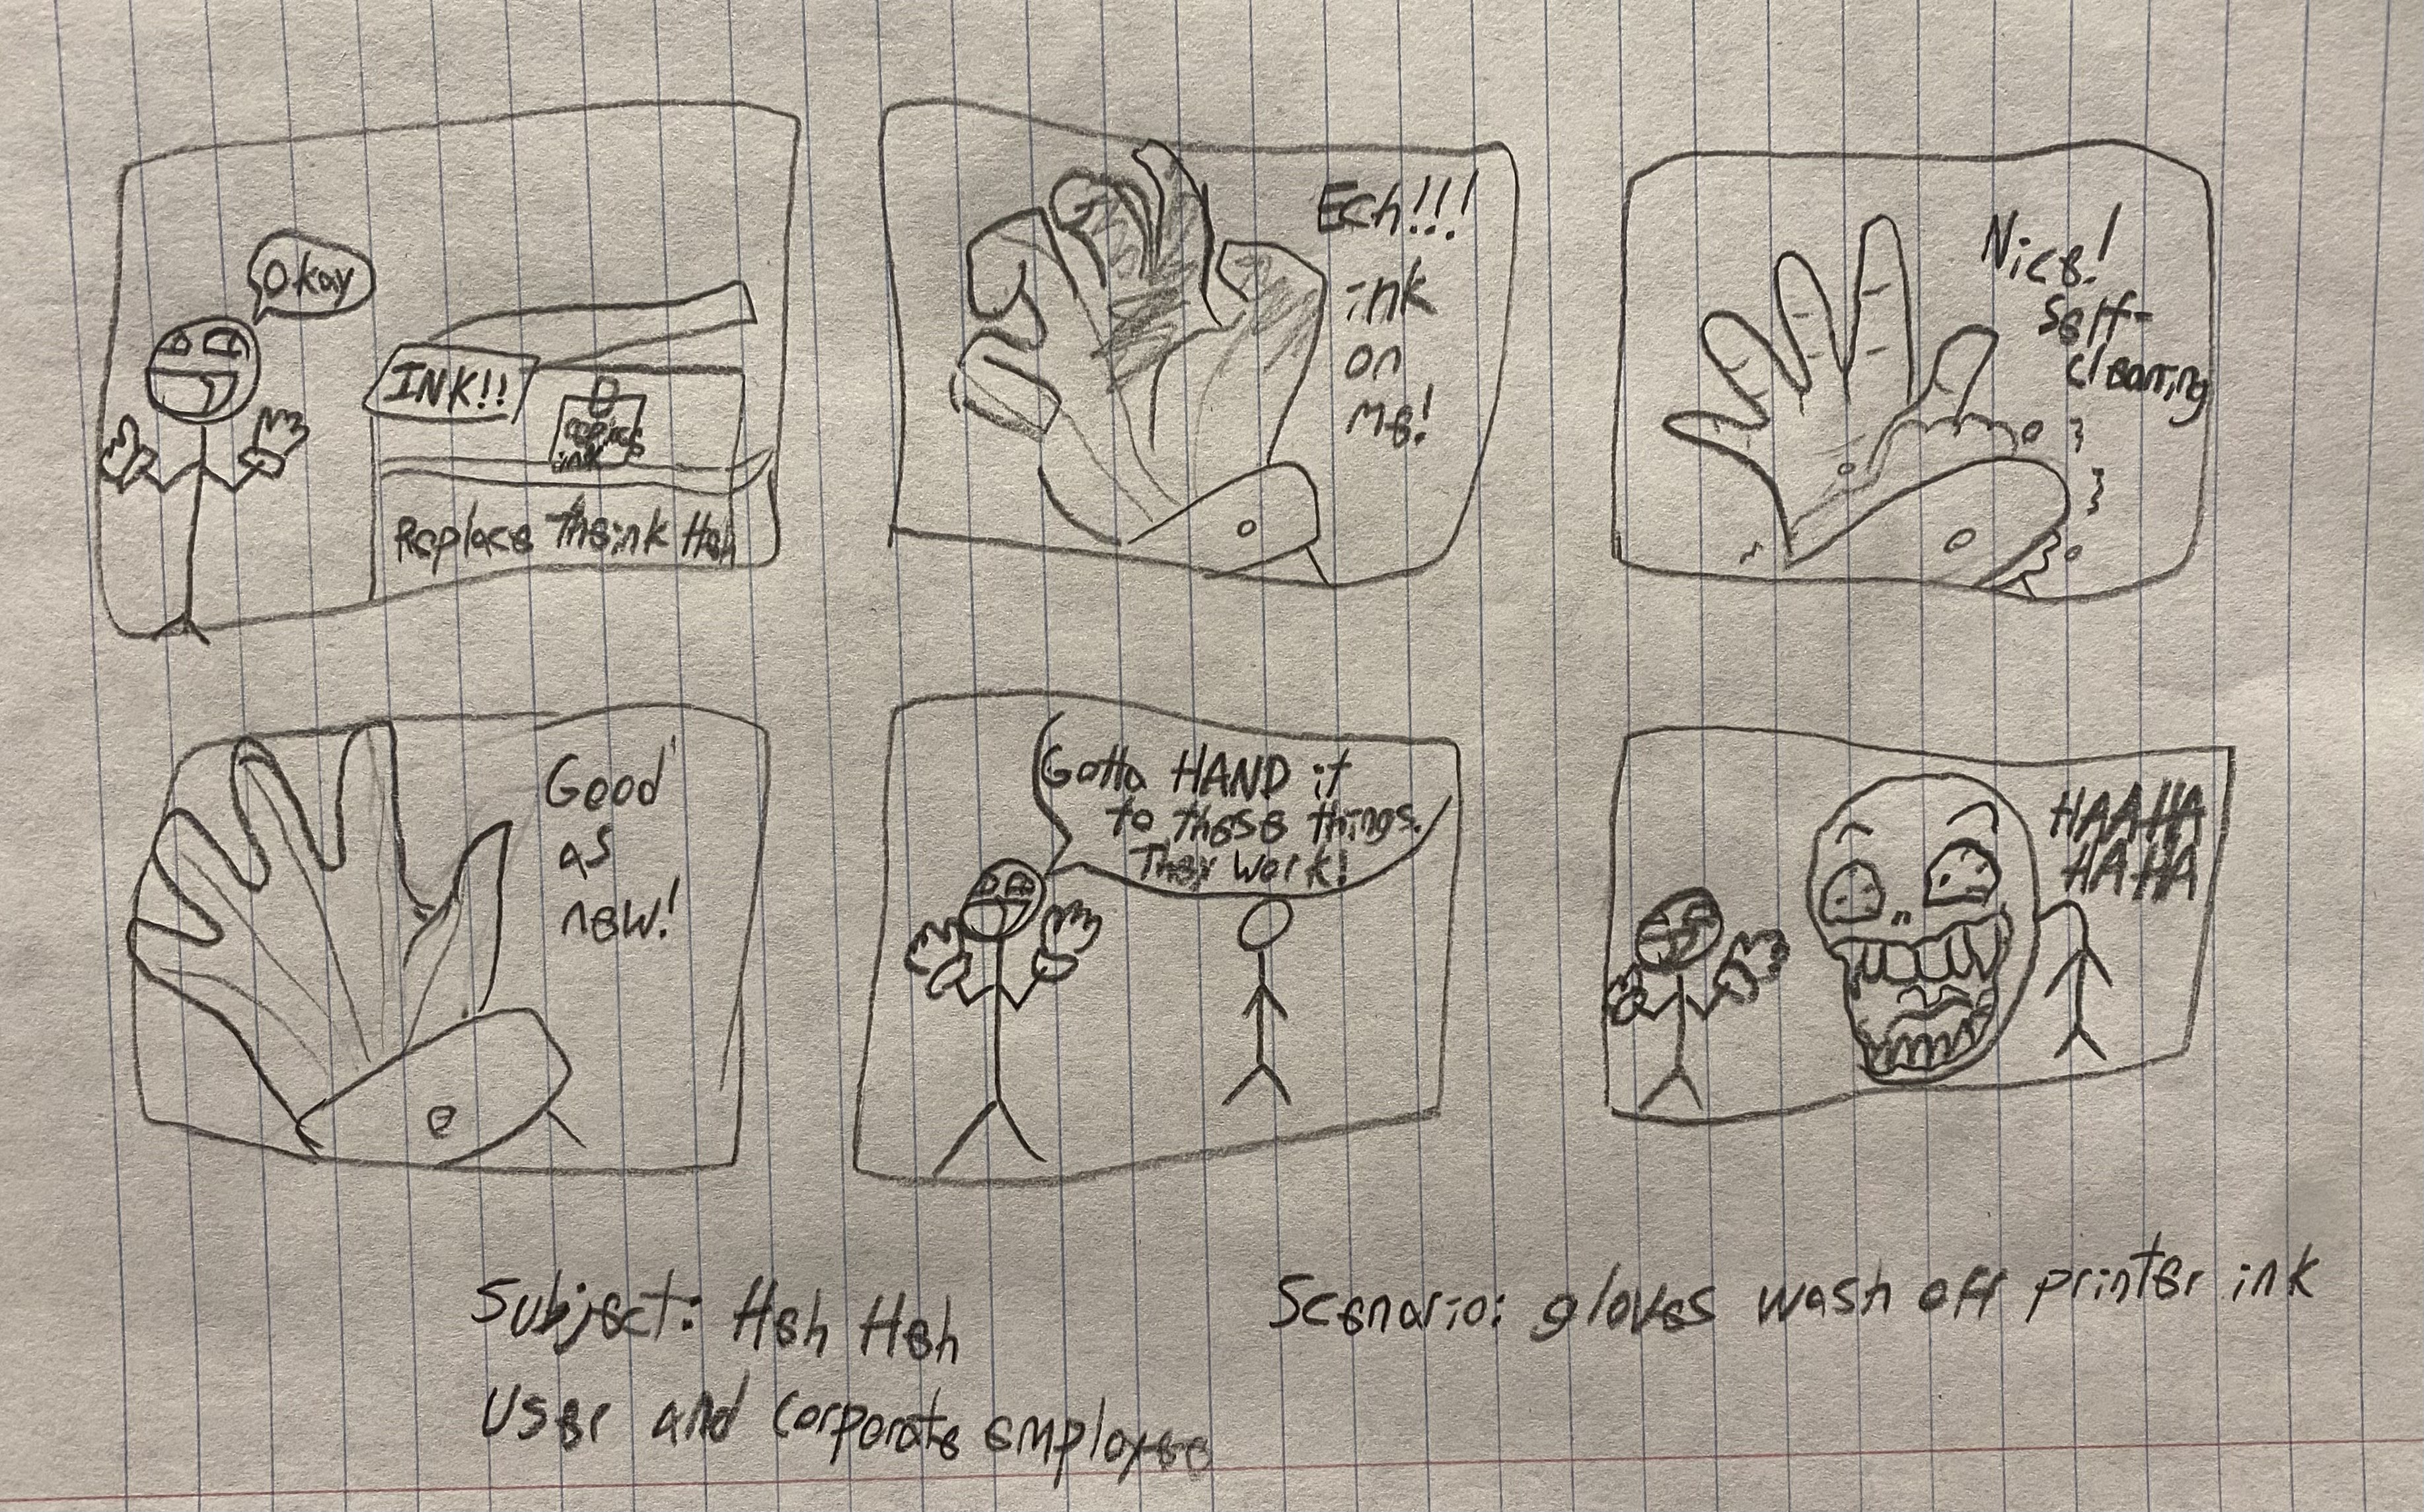 Okay
INK!!
replace
ink
Replace the ink Heh
Ech!!!
ink
on
me!
Nice!
Self-
cleaning
Good
as
new!
Gotta HAND it
to these things.
They work!
HAAHA
HAHA
Subject: Heh Heh
User and corporate employee
Scenario: gloves wash off printer ink